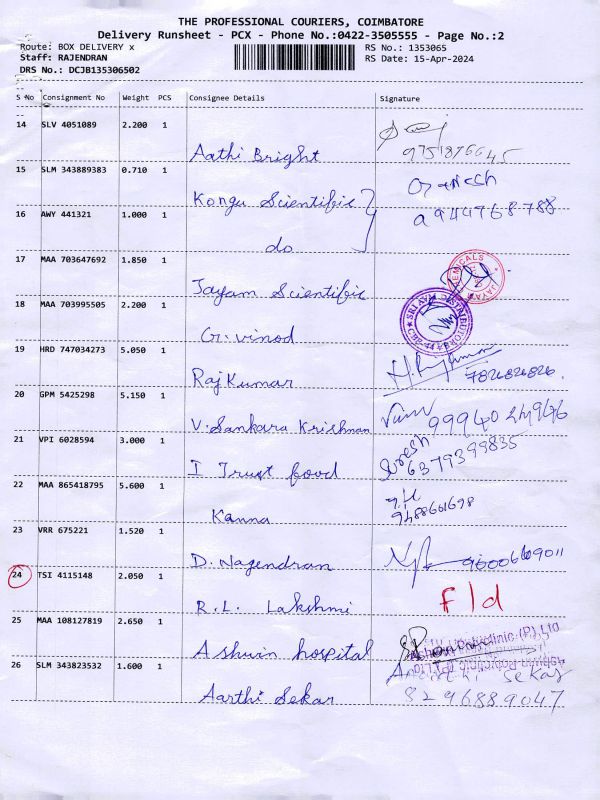 THE PROFESSIONAL COURIERS, COIMBATORE
Delivery Runsheet - PCX - Phone No.:0422-3505555 - Page No.:2
Route: BOX DELIVERY x
RS No.: 1353065
Staff: RAJENDRAN
RS Date: 15-Apr-2024
DRS No.: DCJB135306502
S No Consignment No Weight PCS Consignee Details Signature
14 SLV 4051089 2.200 1
Aathi Bright 9751876645
15 SLM 343889383 0.710 1 Ganesh
Kongu Scientific
16 AWY 441321 1.000 1 9944768788
do
17 MAA 703647692 1.850 1
Jayam Scientific
18 MAA 703995505 2.200 1
G. Vinod
19 HRD 747034273 5.050 1
RajKumar 7826826826.
20 GPM 5425298 5.150 1
V. Sankara Krishnan 9994024946
21 VPI 6028594 3.000 1 Suresh
I Trust food 6379399835
22 MAA 865418795 5.600 1
Kanna 9488661698
23 VRR 675221 1.520 1
D. Nagendran 9600669011
24 TSI 4115148 2.050 1 F/d
R.L. Lakshmi
25 MAA 108127819 2.650 1
Ashwin hospital
26 SLM 343823532 1.600 1
Aarthi Sekar 8296889047